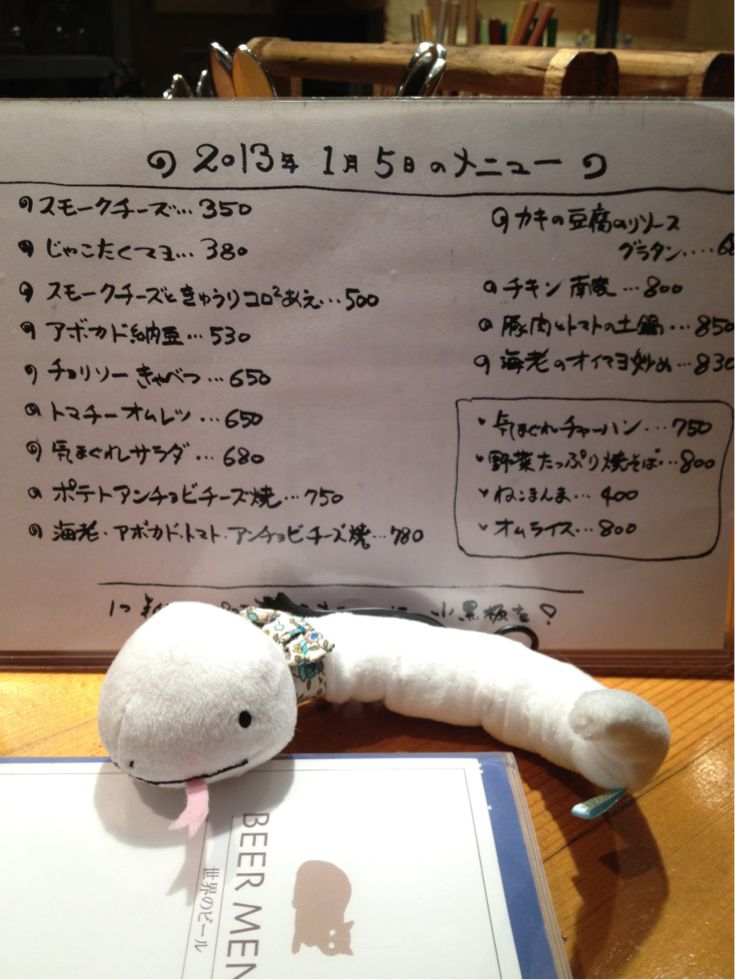 2013年 1月 5日 のメニュー
スモークチーズ…350
じゃこたくマヨ…380
スモークチーズときゅうりコロ²あえ…500
アボカド納豆…530
チョリソーきゃべつ…650
トマチーオムレツ…650
気まぐれサラダ…680
ポテトアンチョビチーズ焼…750
海老・アボカド・トマト・アンチョビチーズ焼…780
カキの豆腐のソース
グラタン....
チキン南蛮…800
豚肉とトマトの土鍋…850
海老のオイマヨ炒め…830
気まぐれチャーハン…750
野菜たっぷり焼そば…800
ねこまんま…400
オムライス…800
小黒板を
BEER MEN
世界のビール